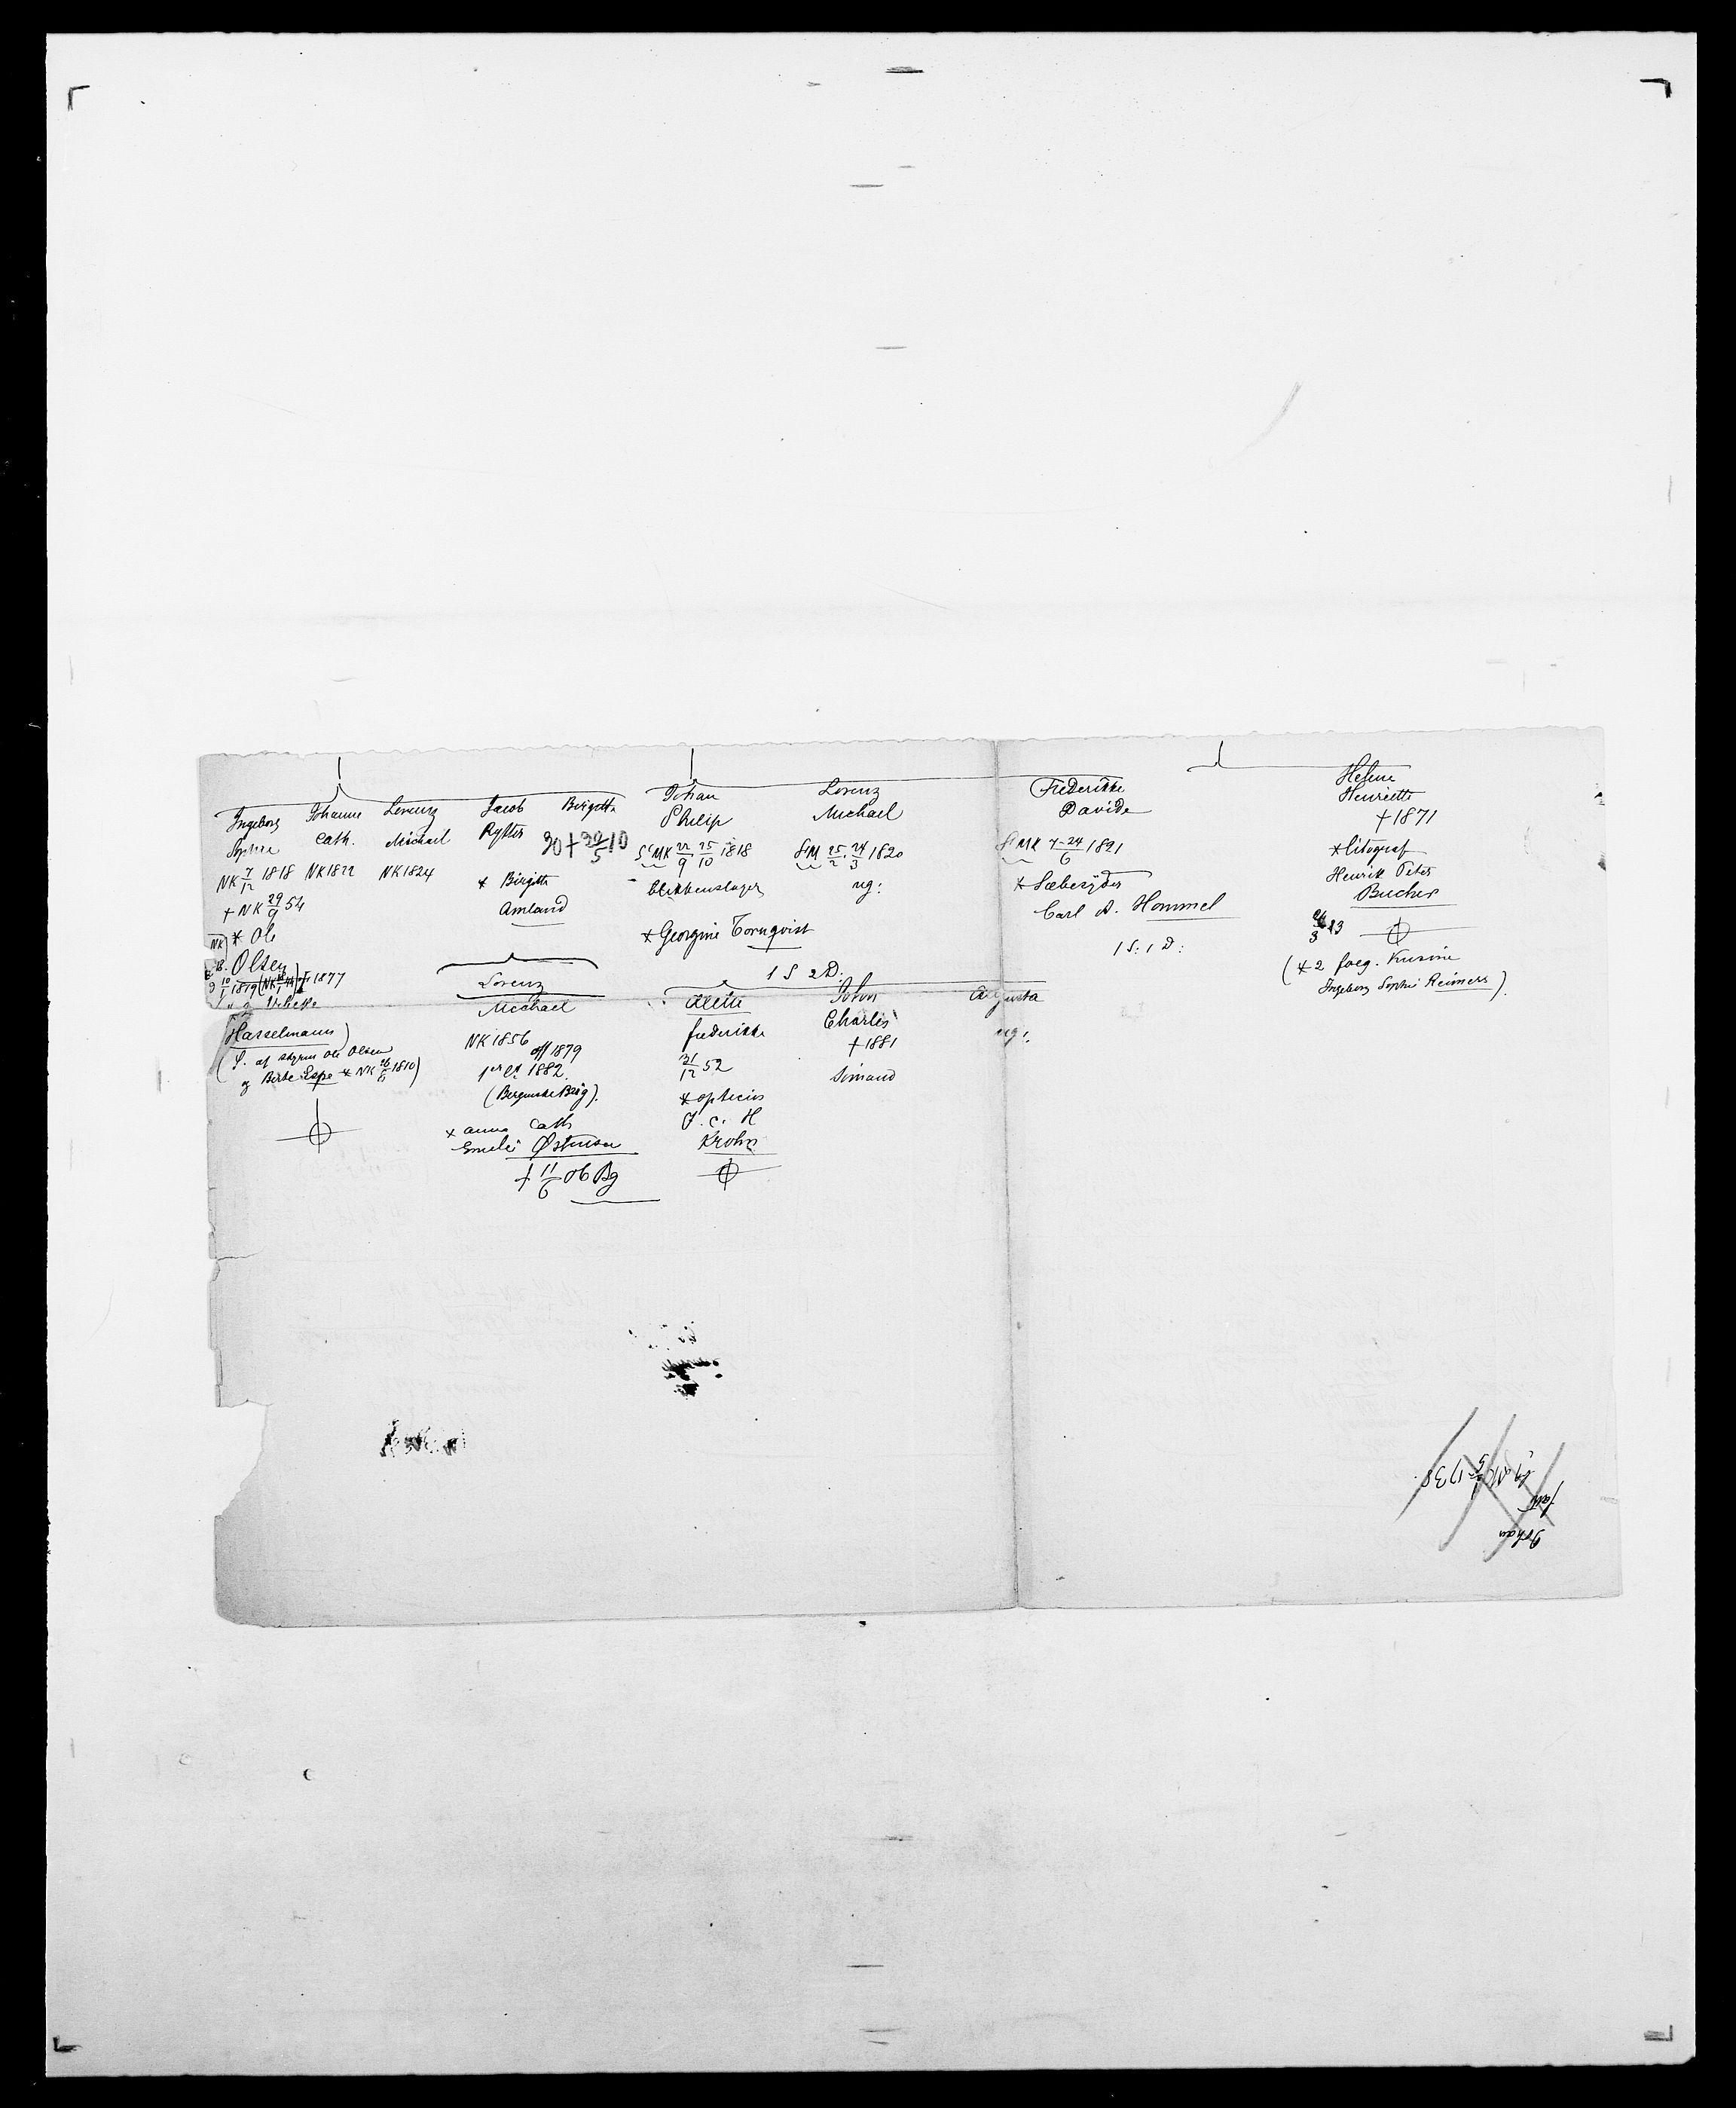 Ingeborg
Sophie
NK 7/12 1818
† NK 29/9 54
* Ole
B. Olsen
† 1877
Hasselmann)
(S. af styrm Ole Olsen
og Birte Espe * NK 26 1810)
Johanne
Cath.
NK 1822
Lorenz
Michael
NK 1824
Jacob
* Birgitte
Amland
Birgitte
30 + 30/5 10
Lorenz
Michael
NK 1856
off 1879
1882
* Anna Cath
Emelie Østensen
† 11/6 06 Bg
Johan
Philip
MK 22/9 25/10 1818
blikkenslager
* Georgine Tornqvist
1 S 2 D:
Alette
Frederikke
31/12 52
* opticus
J. C. H
Krohn
John
Charles
† 1881
Sømand
Augusta
ug:
Lorenz
Michael
25/2 24/3 1820
ug:
Frederikke
Davide
7-24/6 1821
* Sæbesyder
Carl A. Hommel
1 S: 1 D:
Helene
Henriette
† 1871
* litograf
Henrik Peter
Bucher
(* 2 foeg. Kusine
Ingeborg Sophie Reimers).
Johan